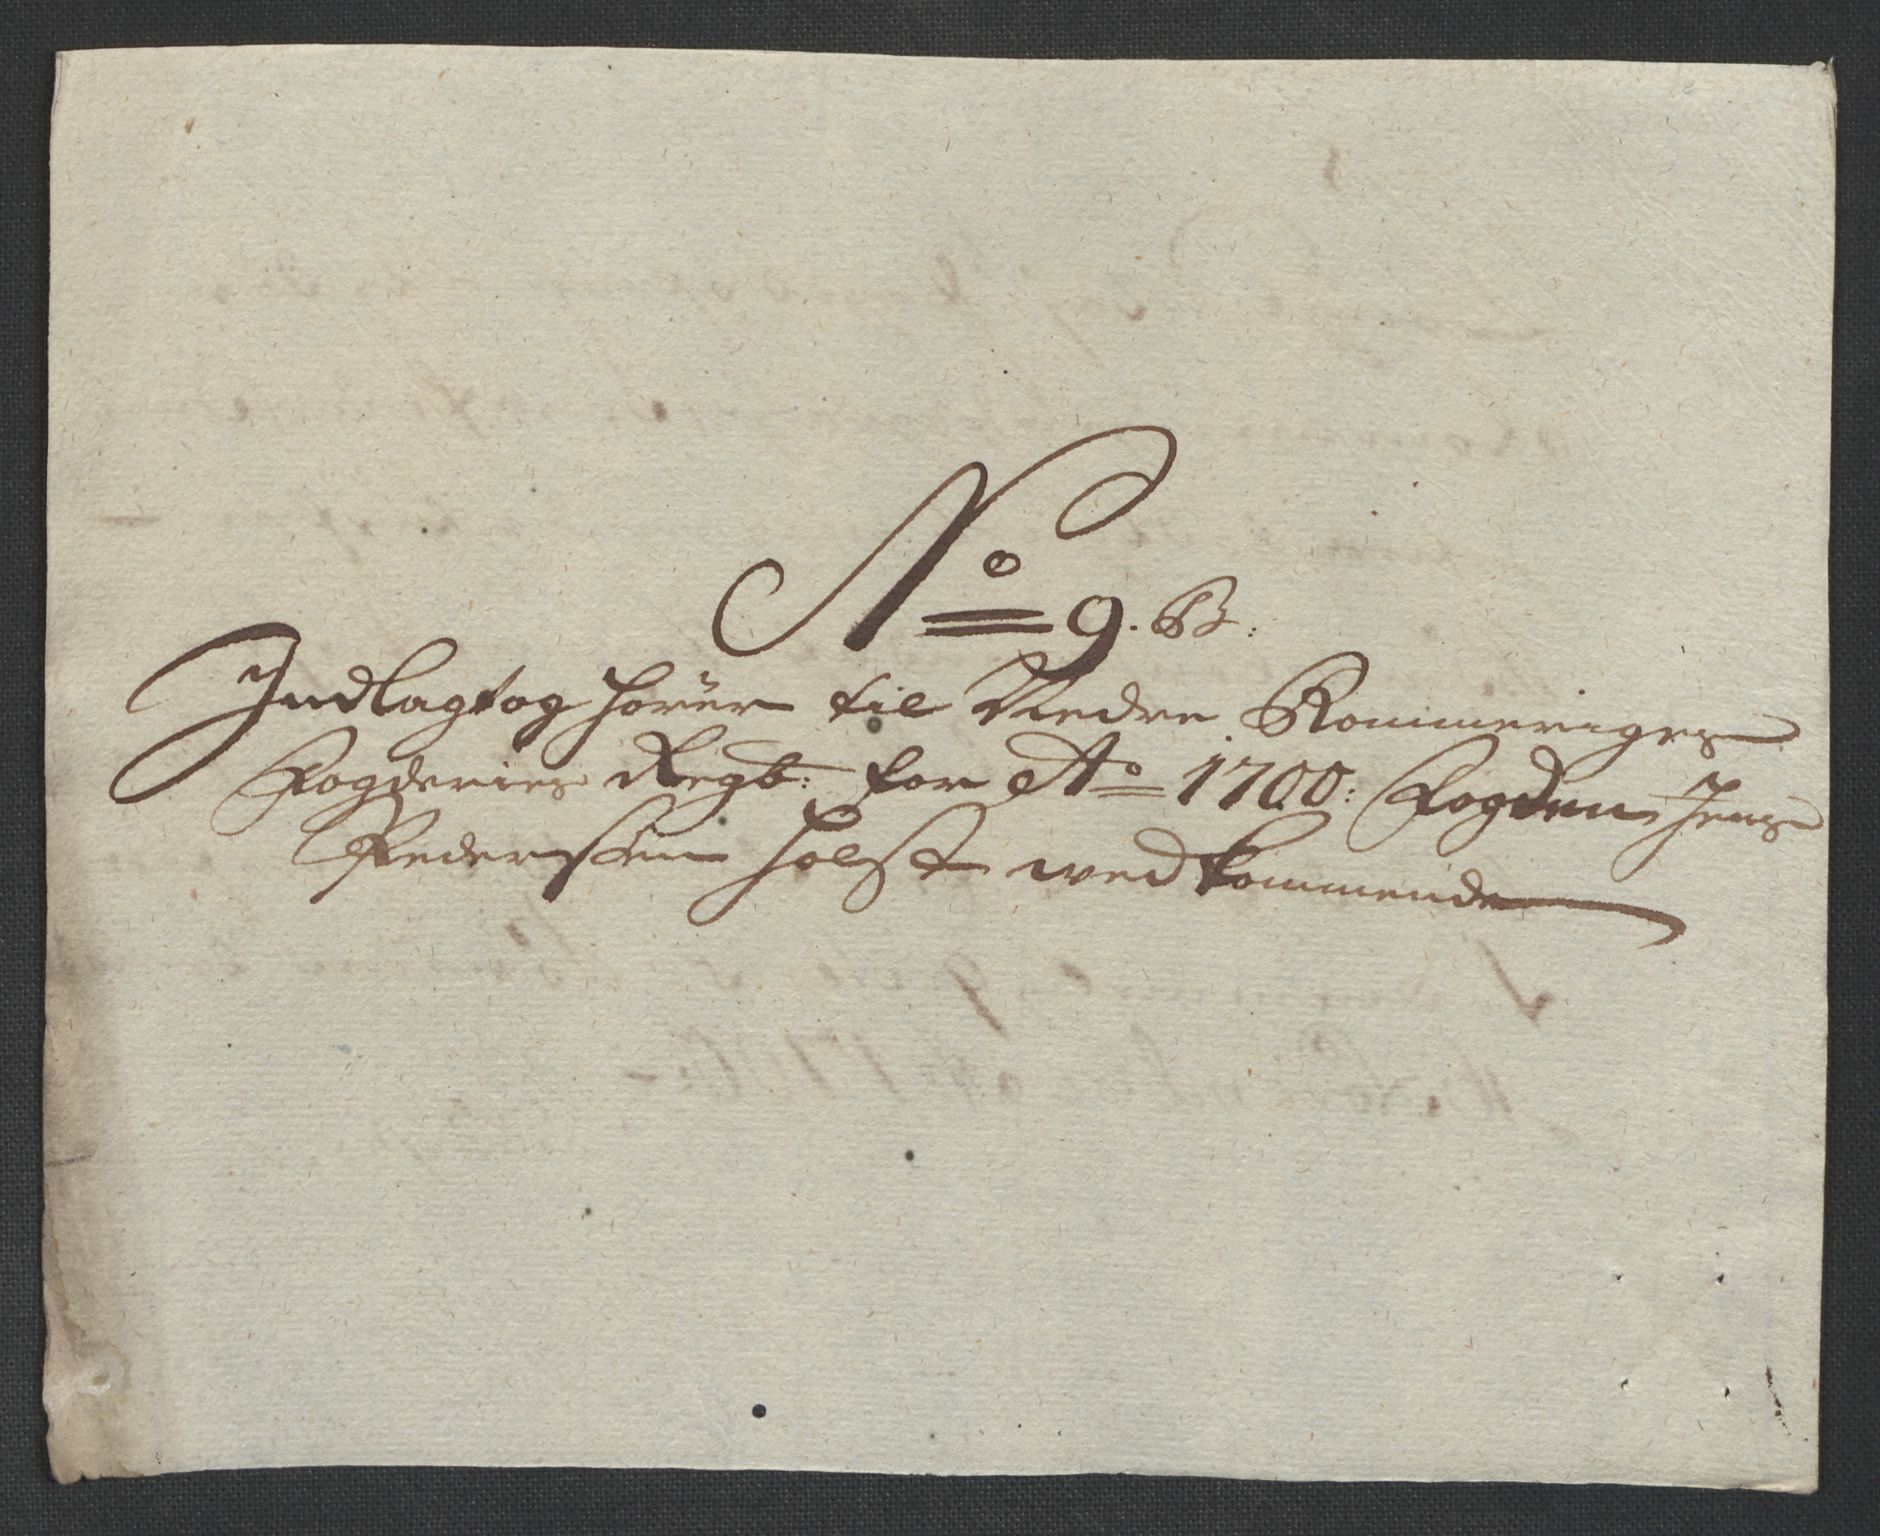 No 9. B:
Indlagt og hörer til Nedre Rommeriges
Fogderies Regb: for Ao 1700: Fogden Jens
Pedersen Holst wedkommende